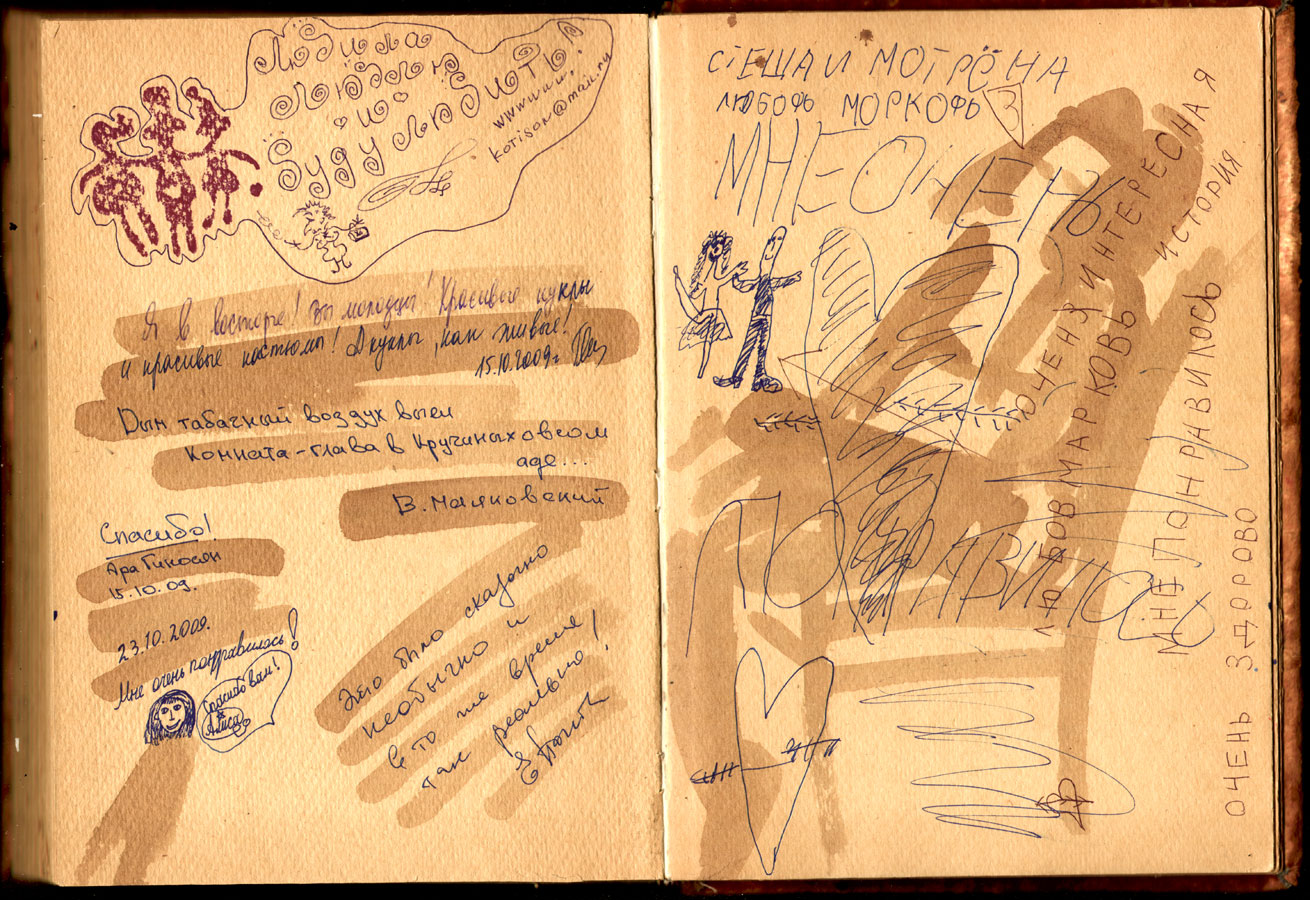 Любила
люблю
и
буду любить!
www.
kotison@mail.ru
Я в восторге! Вы молодцы! Красивые куклы
и красивые костюмы! А куклы, как живые!
15.10.2009г
Дым табачный воздух выел
Комната-глава в Кручёныховском
аде...
В. Маяковский
Спасибо!
Ара
15.10.09.
23.10.2009.
Мне очень понравилось!
Спасибо вам!
Алиса
Это было сказочно
необычно и
в то же время
так реально!
СТЕША И МОТРЁНА
ЛЮБОФЬ МОРКОФЬ
МНЕ ОЧЕНЬ
ПОНРАВИЛОСЬ
ЛЮБОВ МАРКОВЬ
ОЧЕНЗ ИНТЕРЕСНАЯ
ИСТОРИЯ
МНЕ ПОНРАВИЛОСЬ
ОЧЕНЬ ЗДОРОВО